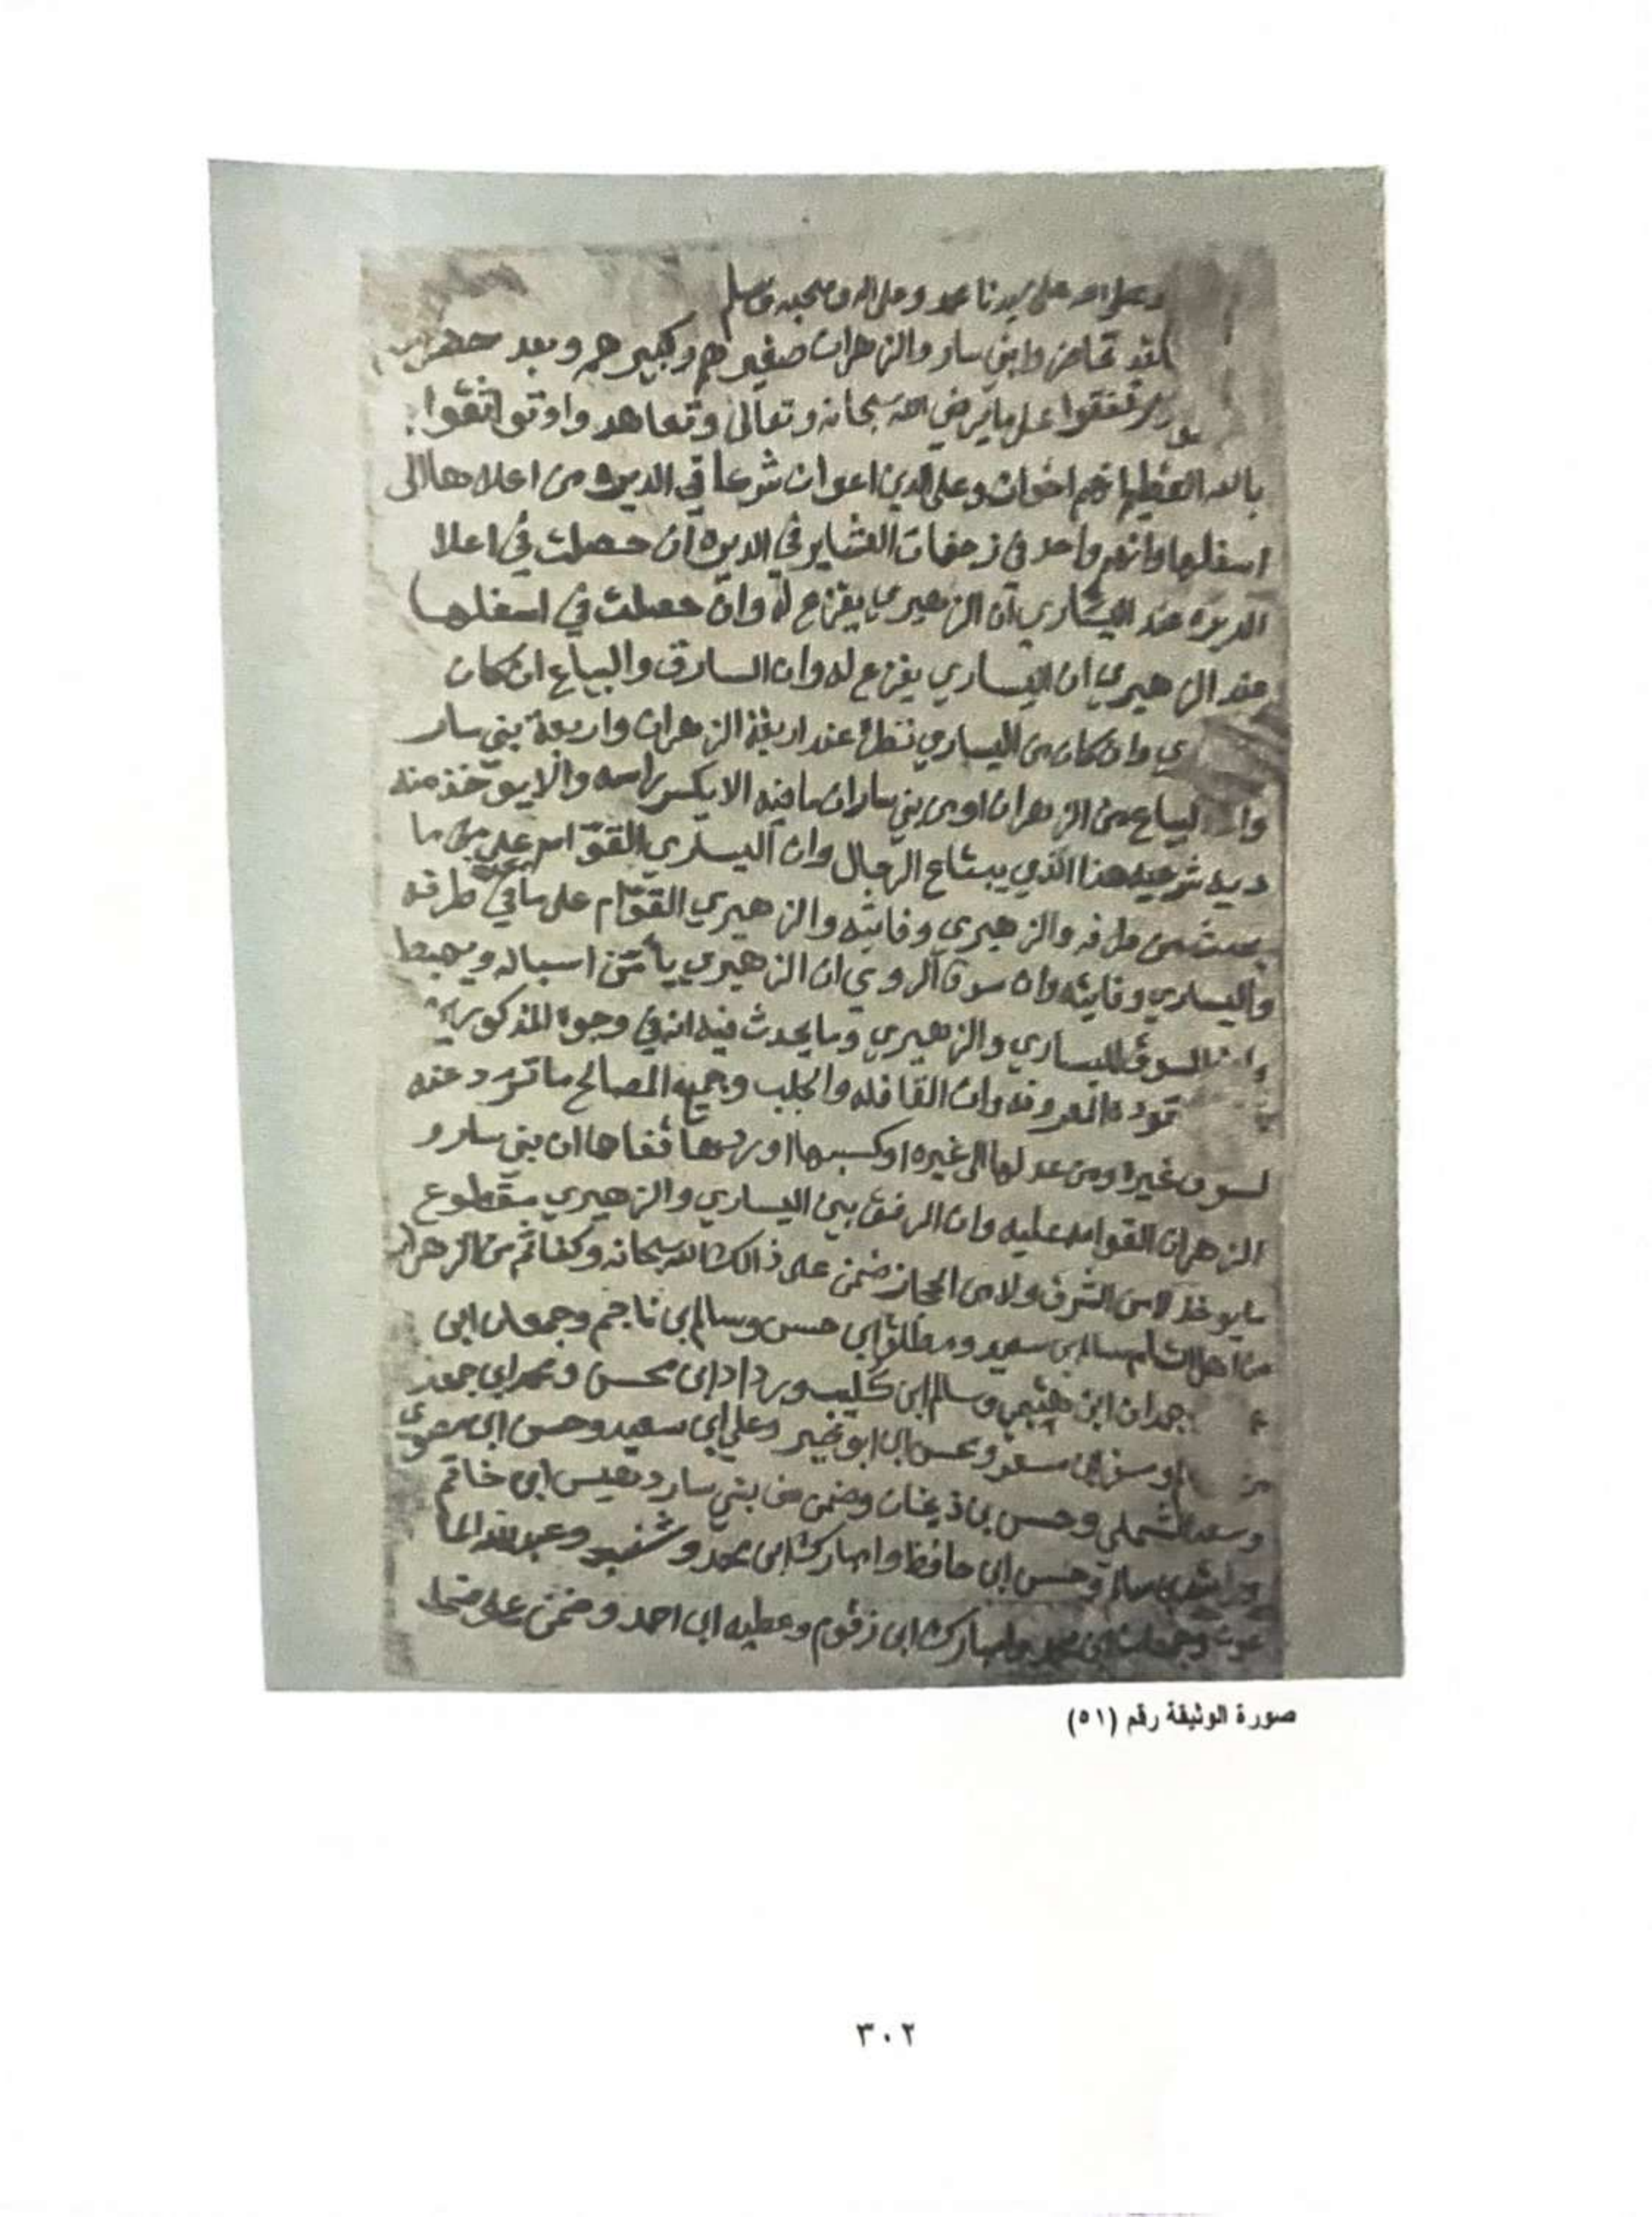 وصلى الله على سيدنا محمد وعلى اله وصحبه وسلم
لقد تخاض وابني سار والزهران صغيرهم وكبيرهم وبعد حضر
تفقوا على ما يرضي الله سبحانه وتعالى وتعاهدوا وتواثقوا
بالله العظيم انهم اخوان وعلى الدين اعوان شرعا في الديره من اعلاها الى
اسفلها وانهم واحد في زحفات العشاير في الديره ان حصلت في اعلا
الديره عند اليساري ان الزهيري يفزع له وان حصلت في اسفلها
عند الزهيري ان اليساري يفزع له وان السارق والبياع ان كان
ي وان كان من اليساري عند اربعة الزهران واربعة بني سار
وا لبياع من الزهران او من بني سار ان ما فيه الا يكسر راسه والا يوخذ منه
ديه شرعيه هذا الذي يبتاع الرجال وان اليساري القوام على ما
من طرفه والزهيري وفايته والزهيري القوام على ما في طرفه
واليساري وفايته وان سوق الروي ان الزهيري يأمن اسباله ويهبط
السوق لليساري والزهيري وما يحدث فيه انه في وجوه المذكورين
المعروفه وان القافله والجلب وجميع المصالح ما تردد عنه
لسوق غيره ومن عدلها الى غيره او كسبها او ردها قفاها ان بني سار و
الزهران القوامه عليه وان الرفق بين اليساري والزهيري مقطوع
ما يوخذ لا من الشرق ولا من الحجاز ضمن على ذالك الله سبحانه وكفا ثم من الزهران
من اهل الشام سالم بن سعيد ومطلق ابن حسن وسالم بن ناجم وجمعان ابن
جمدان ابن وسالم ابن كليب ورداد ابن محسن ابن جمعه
ابن مسفر ومحسن ابن ابو بخير وعلي ابن سعيد وحسن ابن
وسعد الشملي وحسن بن ذيخان وضمن من بني سار دغيس ابن خاتم
وراشد بن سالم وحسن ابن حافظ وامبارك ابن محمد وعبدالله
وجمعان ابن محمد وامبارك ابن زقوم وعطيه ابن احمد وضمن على
صورة الوثيقة رقم (٥١)
٣٠٢